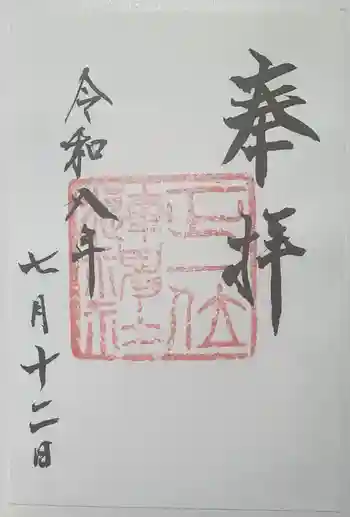 奉拝
令和八年
七月十二日
正一位